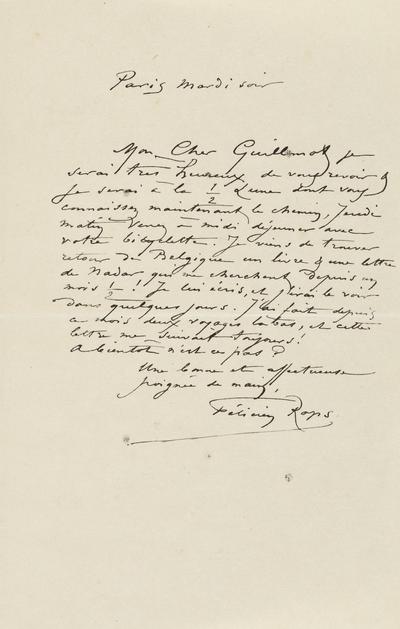 Paris mardi soir
Mon Cher Guillemot, je
serai très heureux de vous revoir &
je serai à la 1/2 Lune dont vous
connaissez maintenant le chemin, jeudi
matin. Venez à midi déjeuner avec
votre bicyclette. Je viens de trouver
retour de Belgique un livre & une lettre
de Nadar qui me cherchent depuis un
mois 1/2 ! Je lui écris, et j'irai le voir
dans quelques jours. J'ai fait depuis
ce mois deux voyages là bas, et cette
lettre me suivait toujours!
A bientôt n'est ce pas?
Une bonne et affectueuse
poignée de main,
Félicien Rops